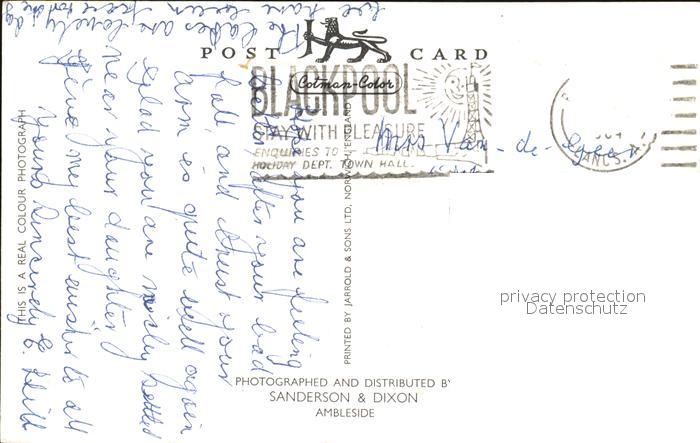 POST CARD
Cotman-Color
BLACKPOOL
STAY WITH PLEASURE
ENQUIRIES TO
HOLIDAY DEPT. TOWN HALL.
LANCS.
Mrs Van-de-
privacy protection
Datenschutz
THIS IS A REAL COLOUR PHOTOGRAPH
PRINTED BY JARROLD & SONS LTD, NORWICH, ENGLAND
we have been
The lakes are lovely
hope you are feeling
better after your bad
fall, and trust your
arm is quite well again
Glad you are nicely settled
near your daughter
Give my best wishes to all
Yours Sincerely E. Hill
PHOTOGRAPHED AND DISTRIBUTED BY
SANDERSON & DIXON
AMBLESIDE